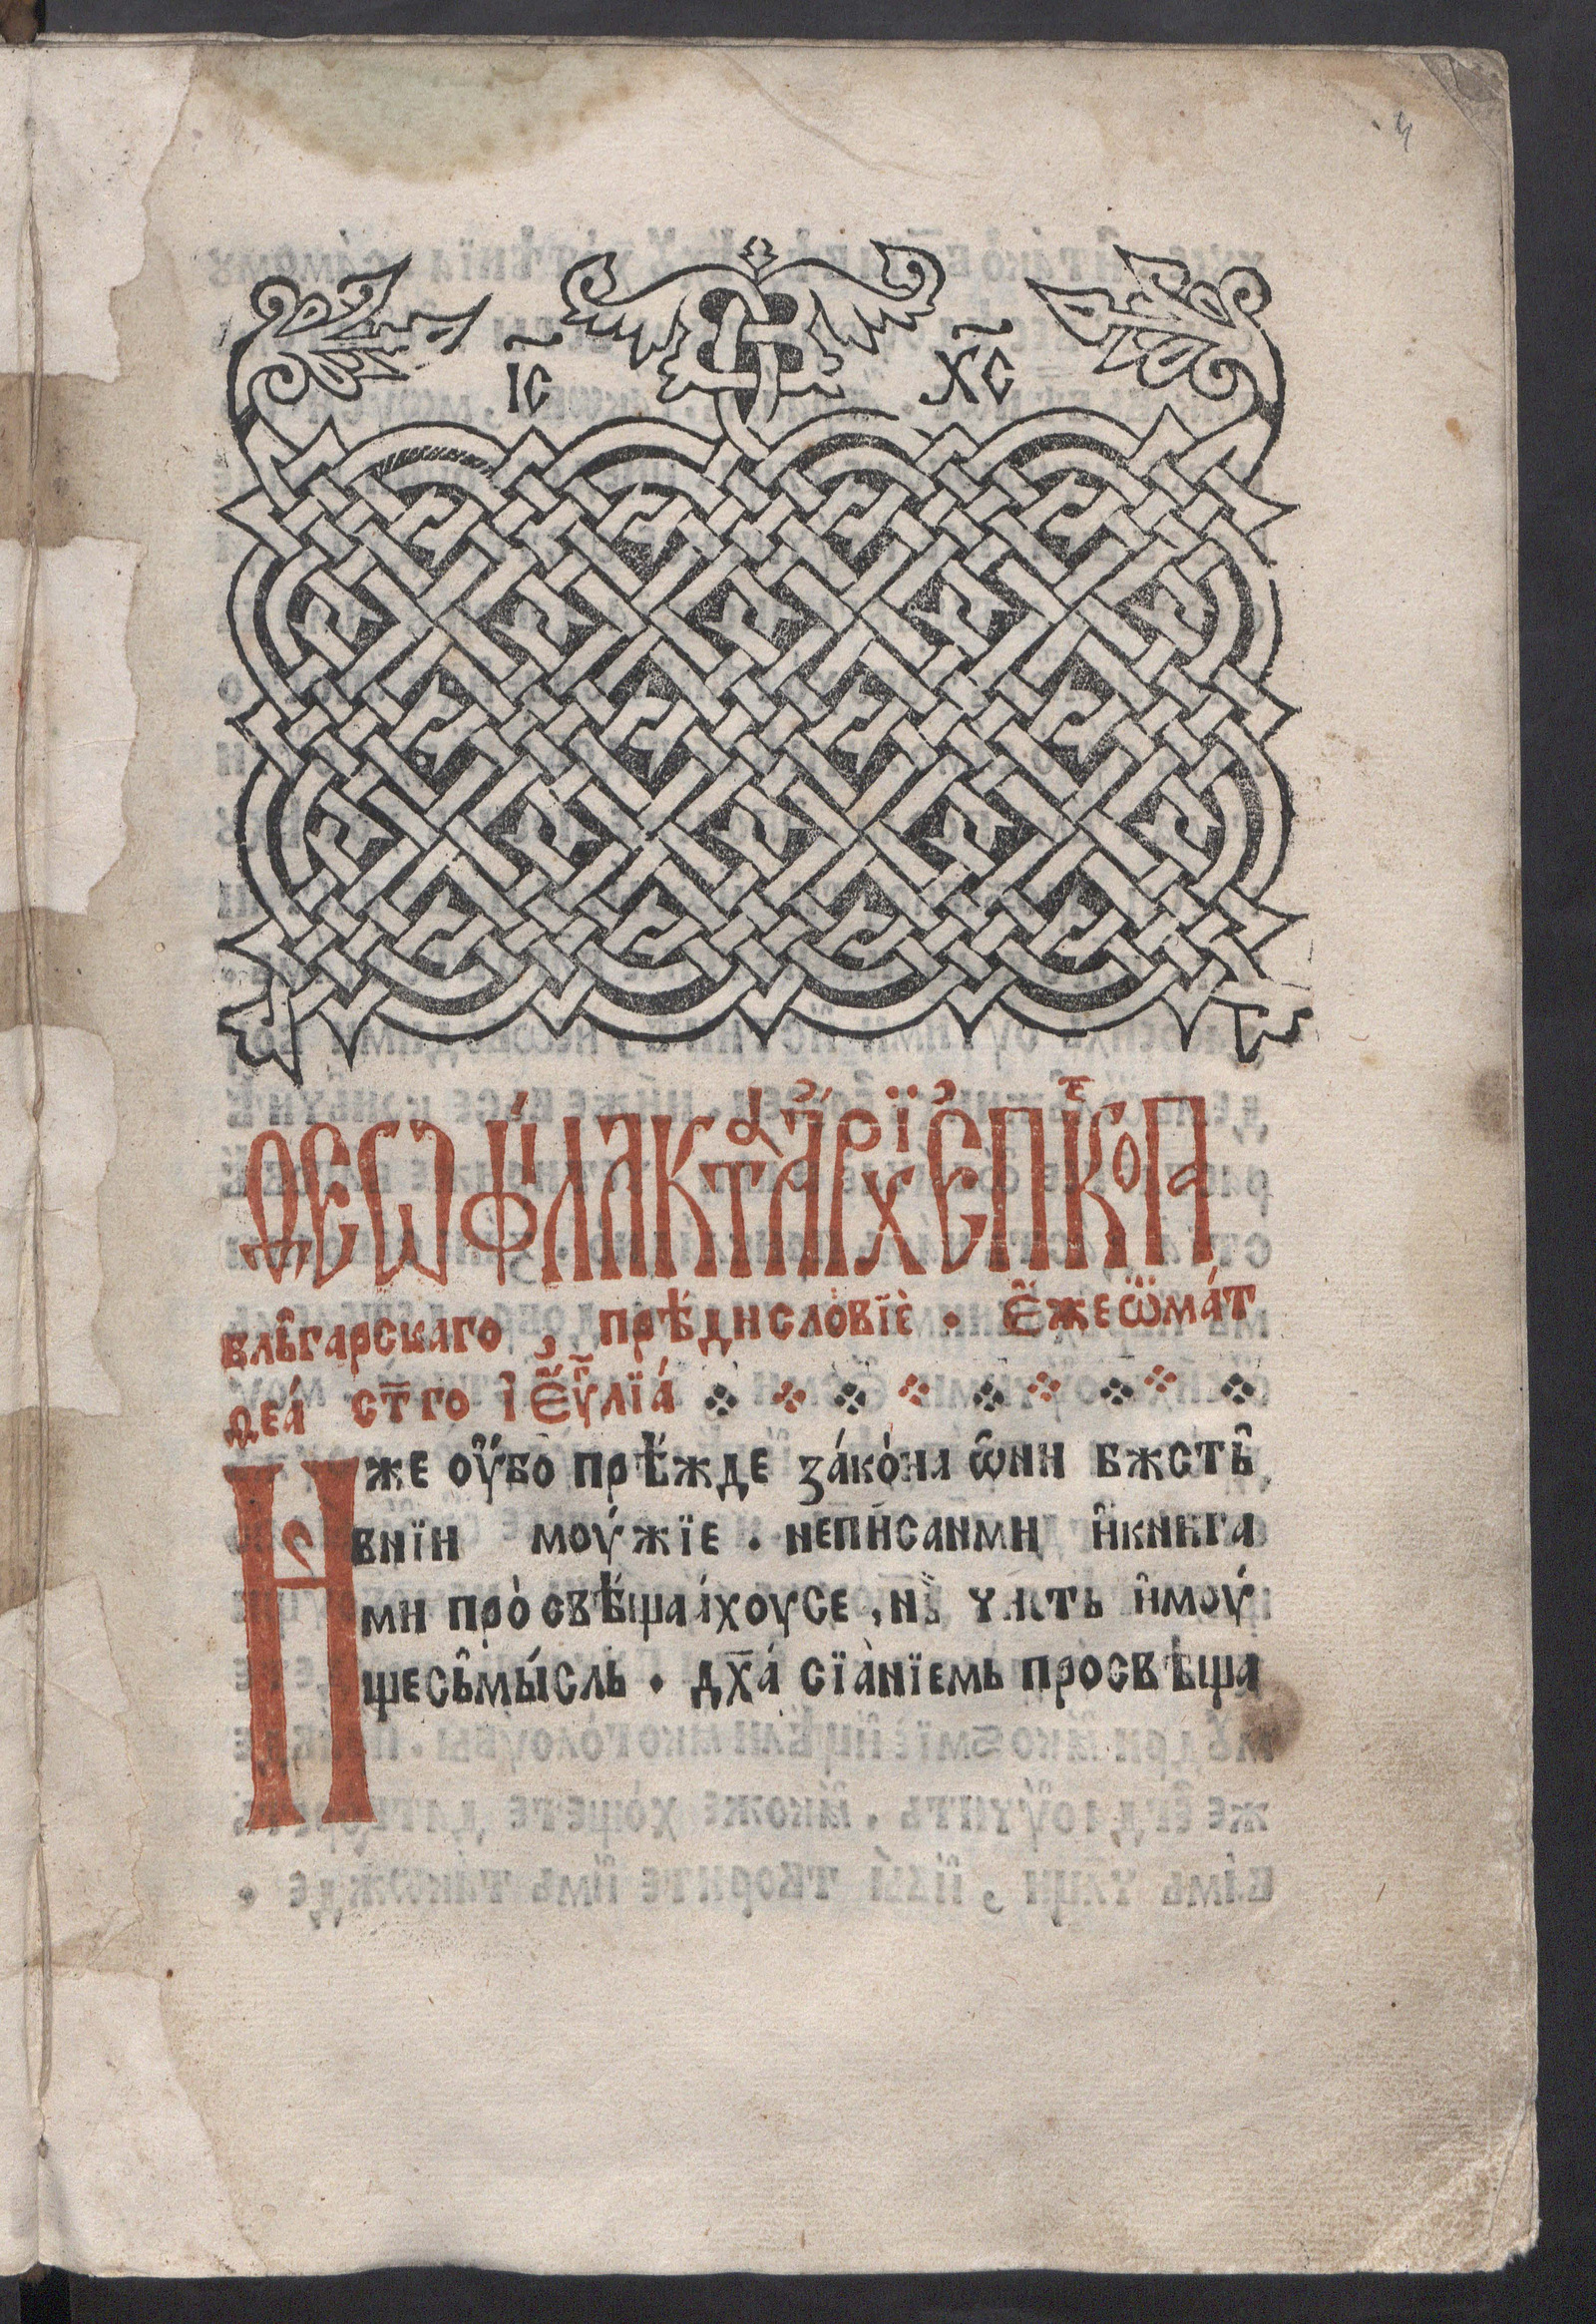 І҃С Х҃С
Ѳеѡфи́лакта а҆рхїе҆пі҆скопа
вль̑гарскаго, прѣ́дисло́вїѐ · Є҆же ѿ ма́т
ѳеа́ ст҃го і҆ є҆ѵ҃лїа́
Иже оу҆́бо прѣ́жде за́ко́на ѡ҆ни бжстъ̑
внїи моу́жїе · непи́саими и҆книга
ми про̀свѣ́щаꙗхоусе, н чисть и҆моу́
щесъ̑мы́сль · дх҃а́ сїа̀нїемь про́свѣ́ща